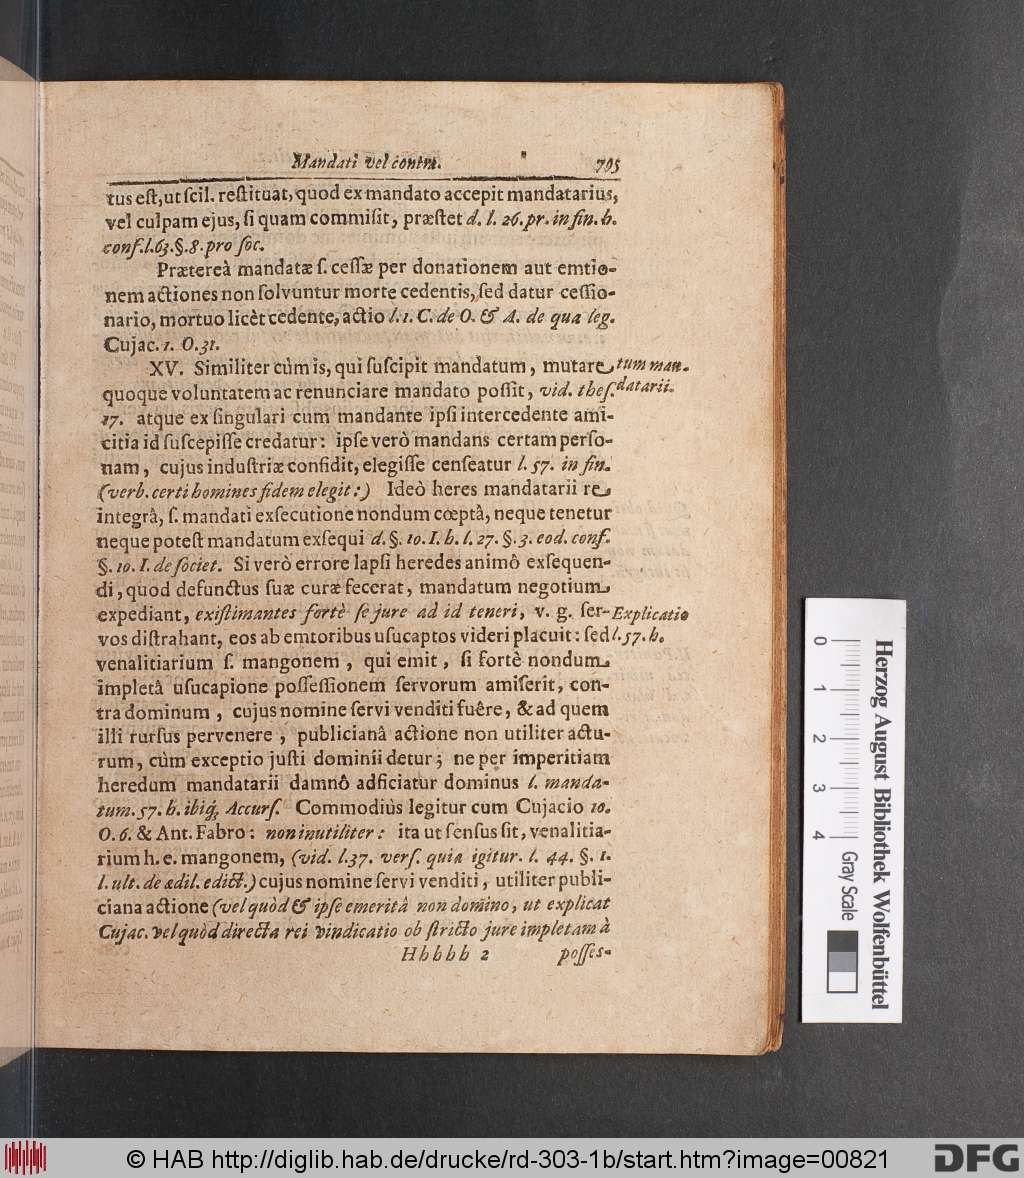 Mandati vel contra. 795
tus est, ut scil. restituat, quod ex mandato accepit mandatarius,
vel culpam ejus, si quam commisit, præstet d. l. 26. pr. in fin. h.
conf. l. 63. §. 8. pro soc.
Prætereà mandatæ s. cessæ per donationem aut emtio-
nem actiones non solvuntur morte cedentis, sed datur cessio-
nario, mortuo licèt cedente, actio l. 1. C. de O. & A. de qua leg.
Cujac. 1. O. 31.
XV. Similiter cùm is, qui suscipit mandatum, mutare
tum man-
quoque voluntatem ac renunciare mandato possit, vid. thes.
datarii.
17. atque ex singulari cum mandante ipsi intercedente ami-
citia id suscepisse credatur: ipse verò mandans certam perso-
nam, cujus industriæ confidit, elegisse censeatur l. 57. in fin.
(verb. certi homines fidem elegit:) Ideò heres mandatarii re
integrâ, s. mandati exsecutione nondum cœptâ, neque tenetur
neque potest mandatum exsequi d. §. 10. I. h. l. 27. §. 3. eod. conf.
§. 10. I. de societ. Si verò errore lapsi heredes animô exsequen-
di, quod defunctus suæ curæ fecerat, mandatum negotium
expediant, existimantes fortè se jure ad id teneri, v. g. ser-
Explicatio
vos distrahant, eos ab emtoribus usucaptos videri placuit: sed
l. 57. h.
venalitiarium s. mangonem, qui emit, si fortè nondum
impletâ usucapione possessionem servorum amiserit, con-
tra dominum, cujus nomine servi venditi fuêre, & ad quem
illi rursus pervenere, publicianâ actione non utiliter actu-
rum, cùm exceptio justi dominii detur; ne per imperitiam
heredum mandatarii damnô adficiatur dominus l. manda-
tum. 57. h. ibiq; Accurs. Commodiùs legitur cum Cujacio 10.
O. 6. & Ant. Fabro: non inutiliter: ita ut sensus sit, venalitia-
rium h. e. mangonem, (vid. l. 37. vers. quia igitur. l. 44. §. 1.
l. ult. de ædil. edict.) cujus nomine servi venditi, utiliter publi-
ciana actione (vel quòd & ipse emerit à non domino, ut explicat
Cujac. vel quòd directa rei vindicatio ob stricto jure impletam à
Hhhhh 2 posses-
Herzog August Bibliothek Wolfenbüttel
0 1 2 3 4 Gray Scale
© HAB http://diglib.hab.de/drucke/rd-303-1b/start.htm?image=00821
DFG